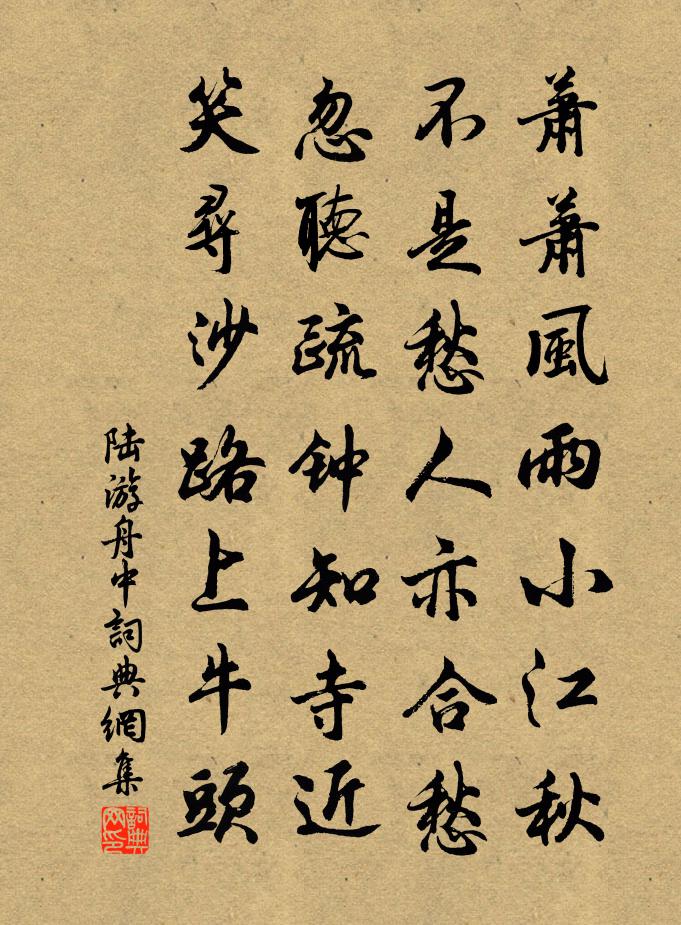 蕭蕭風雨小江秋
不是愁人亦合愁
忽聽疏钟知寺近
笑尋沙路上牛頭
陆游舟中詞典網集
詞典网印